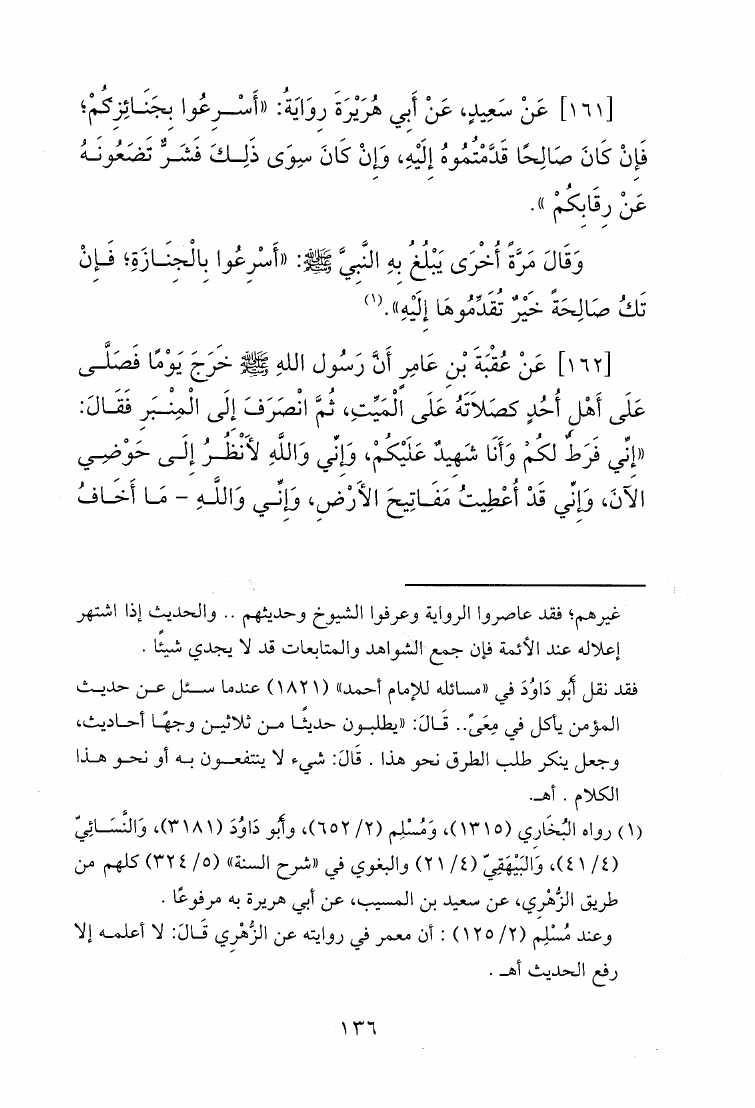 [١٦١] عَنْ سَعِيدٍ، عَنْ أَبِي هُرَيْرَةَ رِوَايَةُ: «أَسْرِعُوا بِجَنَائِزِكُمْ؛
فَإِنْ كَانَ صَالِحًا قَدَّمْتُمُوهُ إِلَيْهِ، وَإِنْ كَانَ سِوَى ذَلِكَ فَشَرٌّ تَضَعُونَهُ
عَنْ رِقَابِكُمْ».
وَقَالَ مَرَّةً أُخْرَى يَبْلُغُ بِهِ النَّبِيَّ ﷺ: «أَسْرِعُوا بِالْجِنَازَةِ؛ فَإِنْ
تَكُ صَالِحَةً خَيْرٌ تُقَدِّمُوهَا إِلَيْهِ».(١)
[١٦٢] عَنْ عُقْبَةَ بْنِ عَامِرٍ أَنَّ رَسُولَ اللهِ ﷺ خَرَجَ يَوْمًا فَصَلَّى
عَلَى أَهْلِ أُحُدٍ كَصَلَاتَهُ عَلَى الْمَيِّتِ، ثُمَّ انْصَرَفَ إِلَى الْمِنْبَرِ فَقَالَ:
«إِنِّي فَرَطٌ لَكُمْ وَأَنَا شَهِيدٌ عَلَيْكُمْ، وَإِنِّي وَاللَّهِ لَأَنْظُرُ إِلَى حَوْضِي
الآنَ، وَإِنِّي قَدْ أُعْطِيتُ مَفَاتِيحَ الأَرْضِ، وَإِنِّي وَاللَّهِ - مَا أَخَافُ
غيرهم؛ فقد عاصروا الرواية وعرفوا الشيوخ وحديثهم .. والحديث إذا اشتهر
إعلاله عند الأئمة فإن جمع الشواهد والمتابعات قد لا يجدي شيئًا .
فقد نقل أَبُو دَاوُدَ في «مسائله للإمام أحمد» (١٨٢١) عندما سئل عن حديث
المؤمن يأكل في مِعَىً.. قَالَ: «يطلبون حديثًا من ثلاثين وجهًا أحاديث،
وجعل ينكر طلب الطرق نحو هذا . قَالَ: شيء لا ينتفعون به أو نحو هذا
الكلام . أهـ.
(١) رواه البُخَاري (١٣١٥)، وَمُسْلِم (٢/ ٦٥٢)، وأَبُو دَاوُدَ (٣١٨١)، وَالنَّسَائِيّ
(٤/ ٤١)، وَالبَيْهَقِيّ (٤/ ٢١) والبغوي في «شرح السنة» (٥/ ٣٢٤) كلهم من
طريق الزُّهْرِي، عن سعيد بن المسيب، عن أبي هريرة به مرفوعًا .
وعند مُسْلِم (٢/ ١٢٥) : أن معمر في روايته عن الزُّهْرِي قَالَ: لا أعلمه إلا
رفع الحديث أهـ .
١٣٦